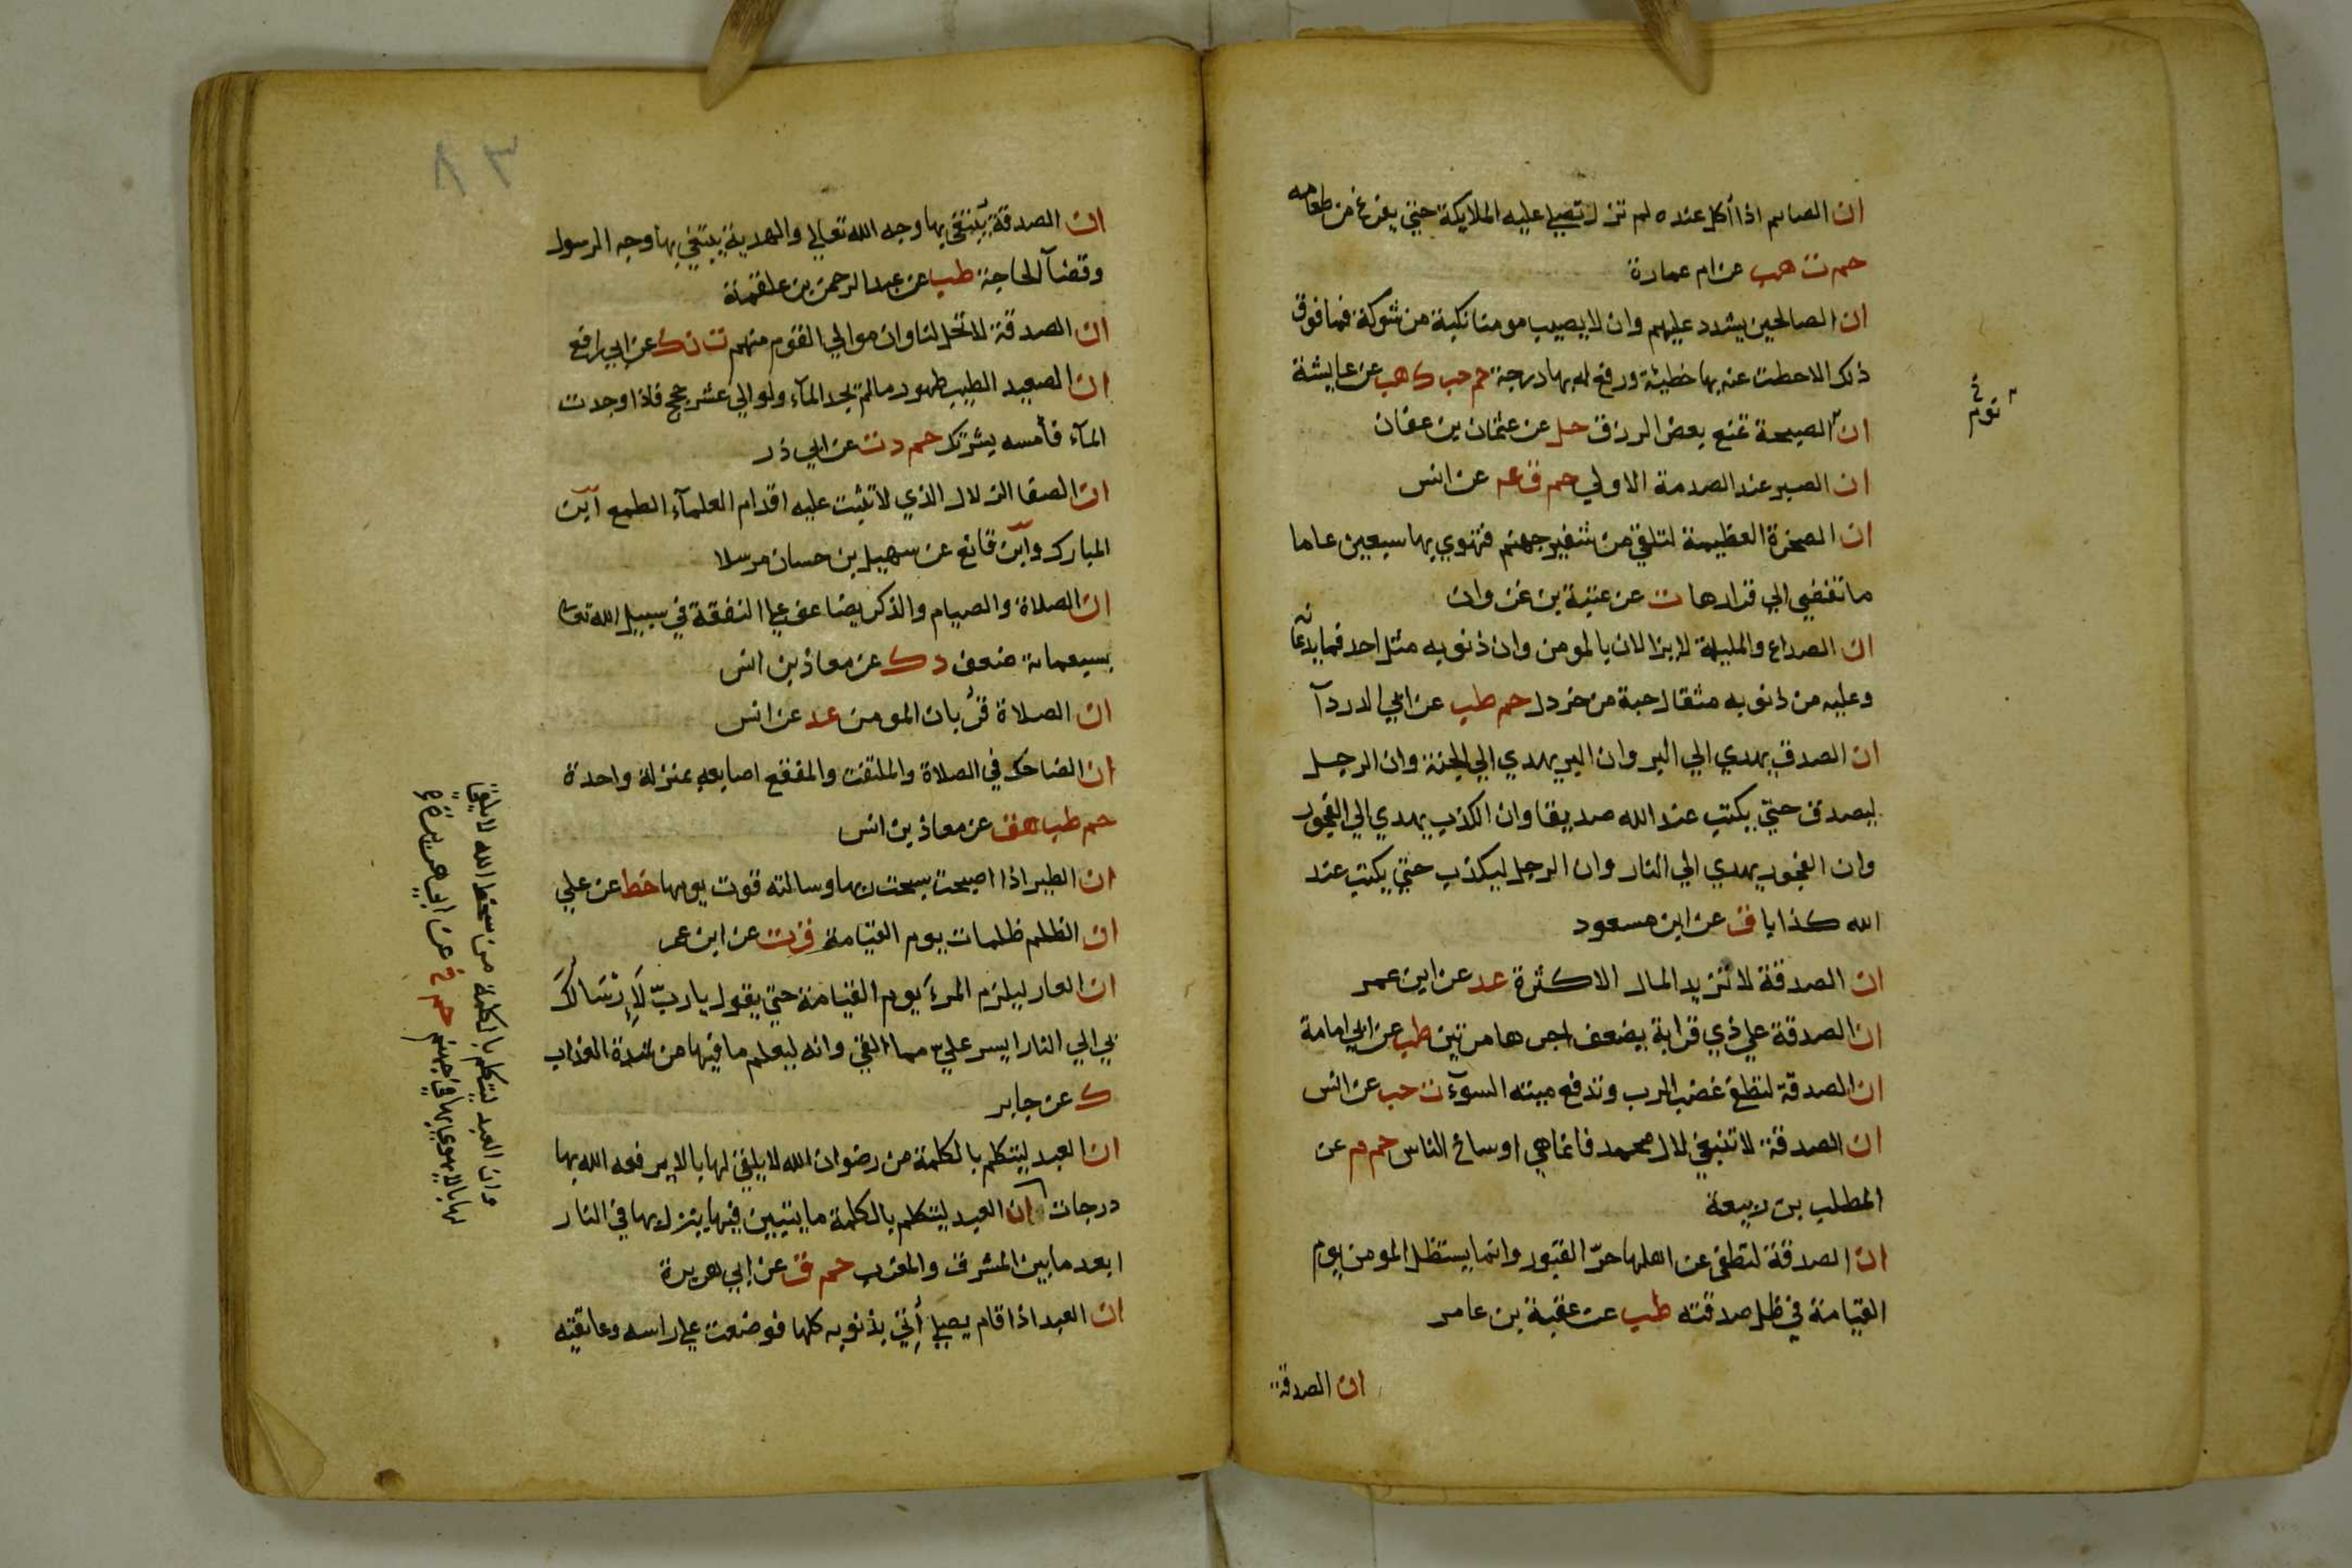 ان الصايم اذا أكل عنده لم تزل تصلي عليه الملايكة حتي يفرغ من طعامه
حم ت هب عن ام عمارة
ان الصالحين يشدد عليهم وان لا يصيب مومنا نكبة من شوكة فما فوق
ذلك الاحطت عنه بها خطيئة ورفع له بها درجة حم حب ك هب عن عايشة
ان الصبحة تمنع بعض الرزق حل عن عثمان بن عفان
نوم
ان الصبر عند الصدمة الاولي حم ق عه عن انس
ان الصخرة العظيمة لتلقي من شفير جهنم فتهوي بها سبعين عاما
ما تفضي الي قرارها ت عن عتبة بن غزوان
ان الصداع والمليلة لا يزالان بالمومن وان ذنوبه مثل احد فما يدعانه
وعليه من ذنوبه مثقال حبة من خردل حم طب عن ابي الدردآ
ان الصدق يهدي الي البر وان البر يهدي الي الجنة وان الرجل
ليصدق حتي يكتب عند الله صديقا وان الكذب يهدي الي الفجور
وان الفجور يهدي الي النار وان الرجل ليكذب حتي يكتب عند
الله كذابا ق عن ابن مسعود
ان الصدقة لا تزيد المال الا كثرة عد عن ابن عمر
ان الصدقة علي ذي قرابة يضعف اجرها مرتين طب عن ابي امامة
ان الصدقة لتطفئ غضب الرب وتدفع ميتة السوء ت حب عن انس
ان الصدقة لا تنبغي لال محمد فانما هي اوساخ الناس حم م عن
المطلب بن ربيعة
ان الصدقة لتطفي عن اهلها حرّ القبور وانما يستظل المومن يوم
القيامة في ظل صدقته طب عن عقبة بن عامر
ان الصدقة
٨٣
ان الصدقة يبتغي بها وجه الله تعالي والهدية يبتغي بها وجه الرسول
وقضآ الحاجة طب عن عبد الرحمن بن علقمة
ان الصدقة لا تحل لنا وان موالي القوم منهم ت ن ك عن ابي رافع
ان الصعيد الطيب طهور مالم تجد المآء ولو الي عشر حجج فاذا وجدت
المآء فأمسه بشرتك حم د ت عن ابي ذر
ان الصفا الزلال الذي لا تثبت عليه اقدام العلمآء الطمع آبن
المبارك وآبن قانع عن سهيل بن حسان مرسلا
ان الصلاة والصيام والذكر يضاعف علي النفقة في سبيل الله تعالي
بسبعماىة ضعف د ك عن معاذ بن انس
ان الصلاة قربان المومن عد عن انس
ان الضاحك في الصلاة والملتفت والمفقع اصابعه بمنزلة واحدة
حم طب هق عن معاذ بن انس
ان الطير اذا اصبحت سبحت ربها وسالته قوت يومها خط عن علي
ان الظلم ظلمات يوم القيامة ق ت عن ابن عمر
ان العار ليلزم المرءَ يوم القيامة حتي يقول يا ربّ لَإرْسَالُكَ
بي الي النار ايسر عليّ مما القي وانه ليعلم ما فيها من شدة العذاب
ك عن جابر
ان العبد ليتكلم بالكلمة من رضوان الله لا يلقي لها بالا يرفعه الله بها
درجات ان العبد ليتكلم بالكلمة ما يتبين فيها يزل بها في النار
ابعد ما بين المشرق والمغرب حم ق عن ابي هريرة
ان العبد اذا قام يصلي أُتي بذنوبه كلها فوضعت علي راسه وعاتقيه
وان العبد ليتكلم بالكلمة من سخط الله لا يلقي
لها بالا يهوي بها في جهنم حم خ عن ابي هريرة